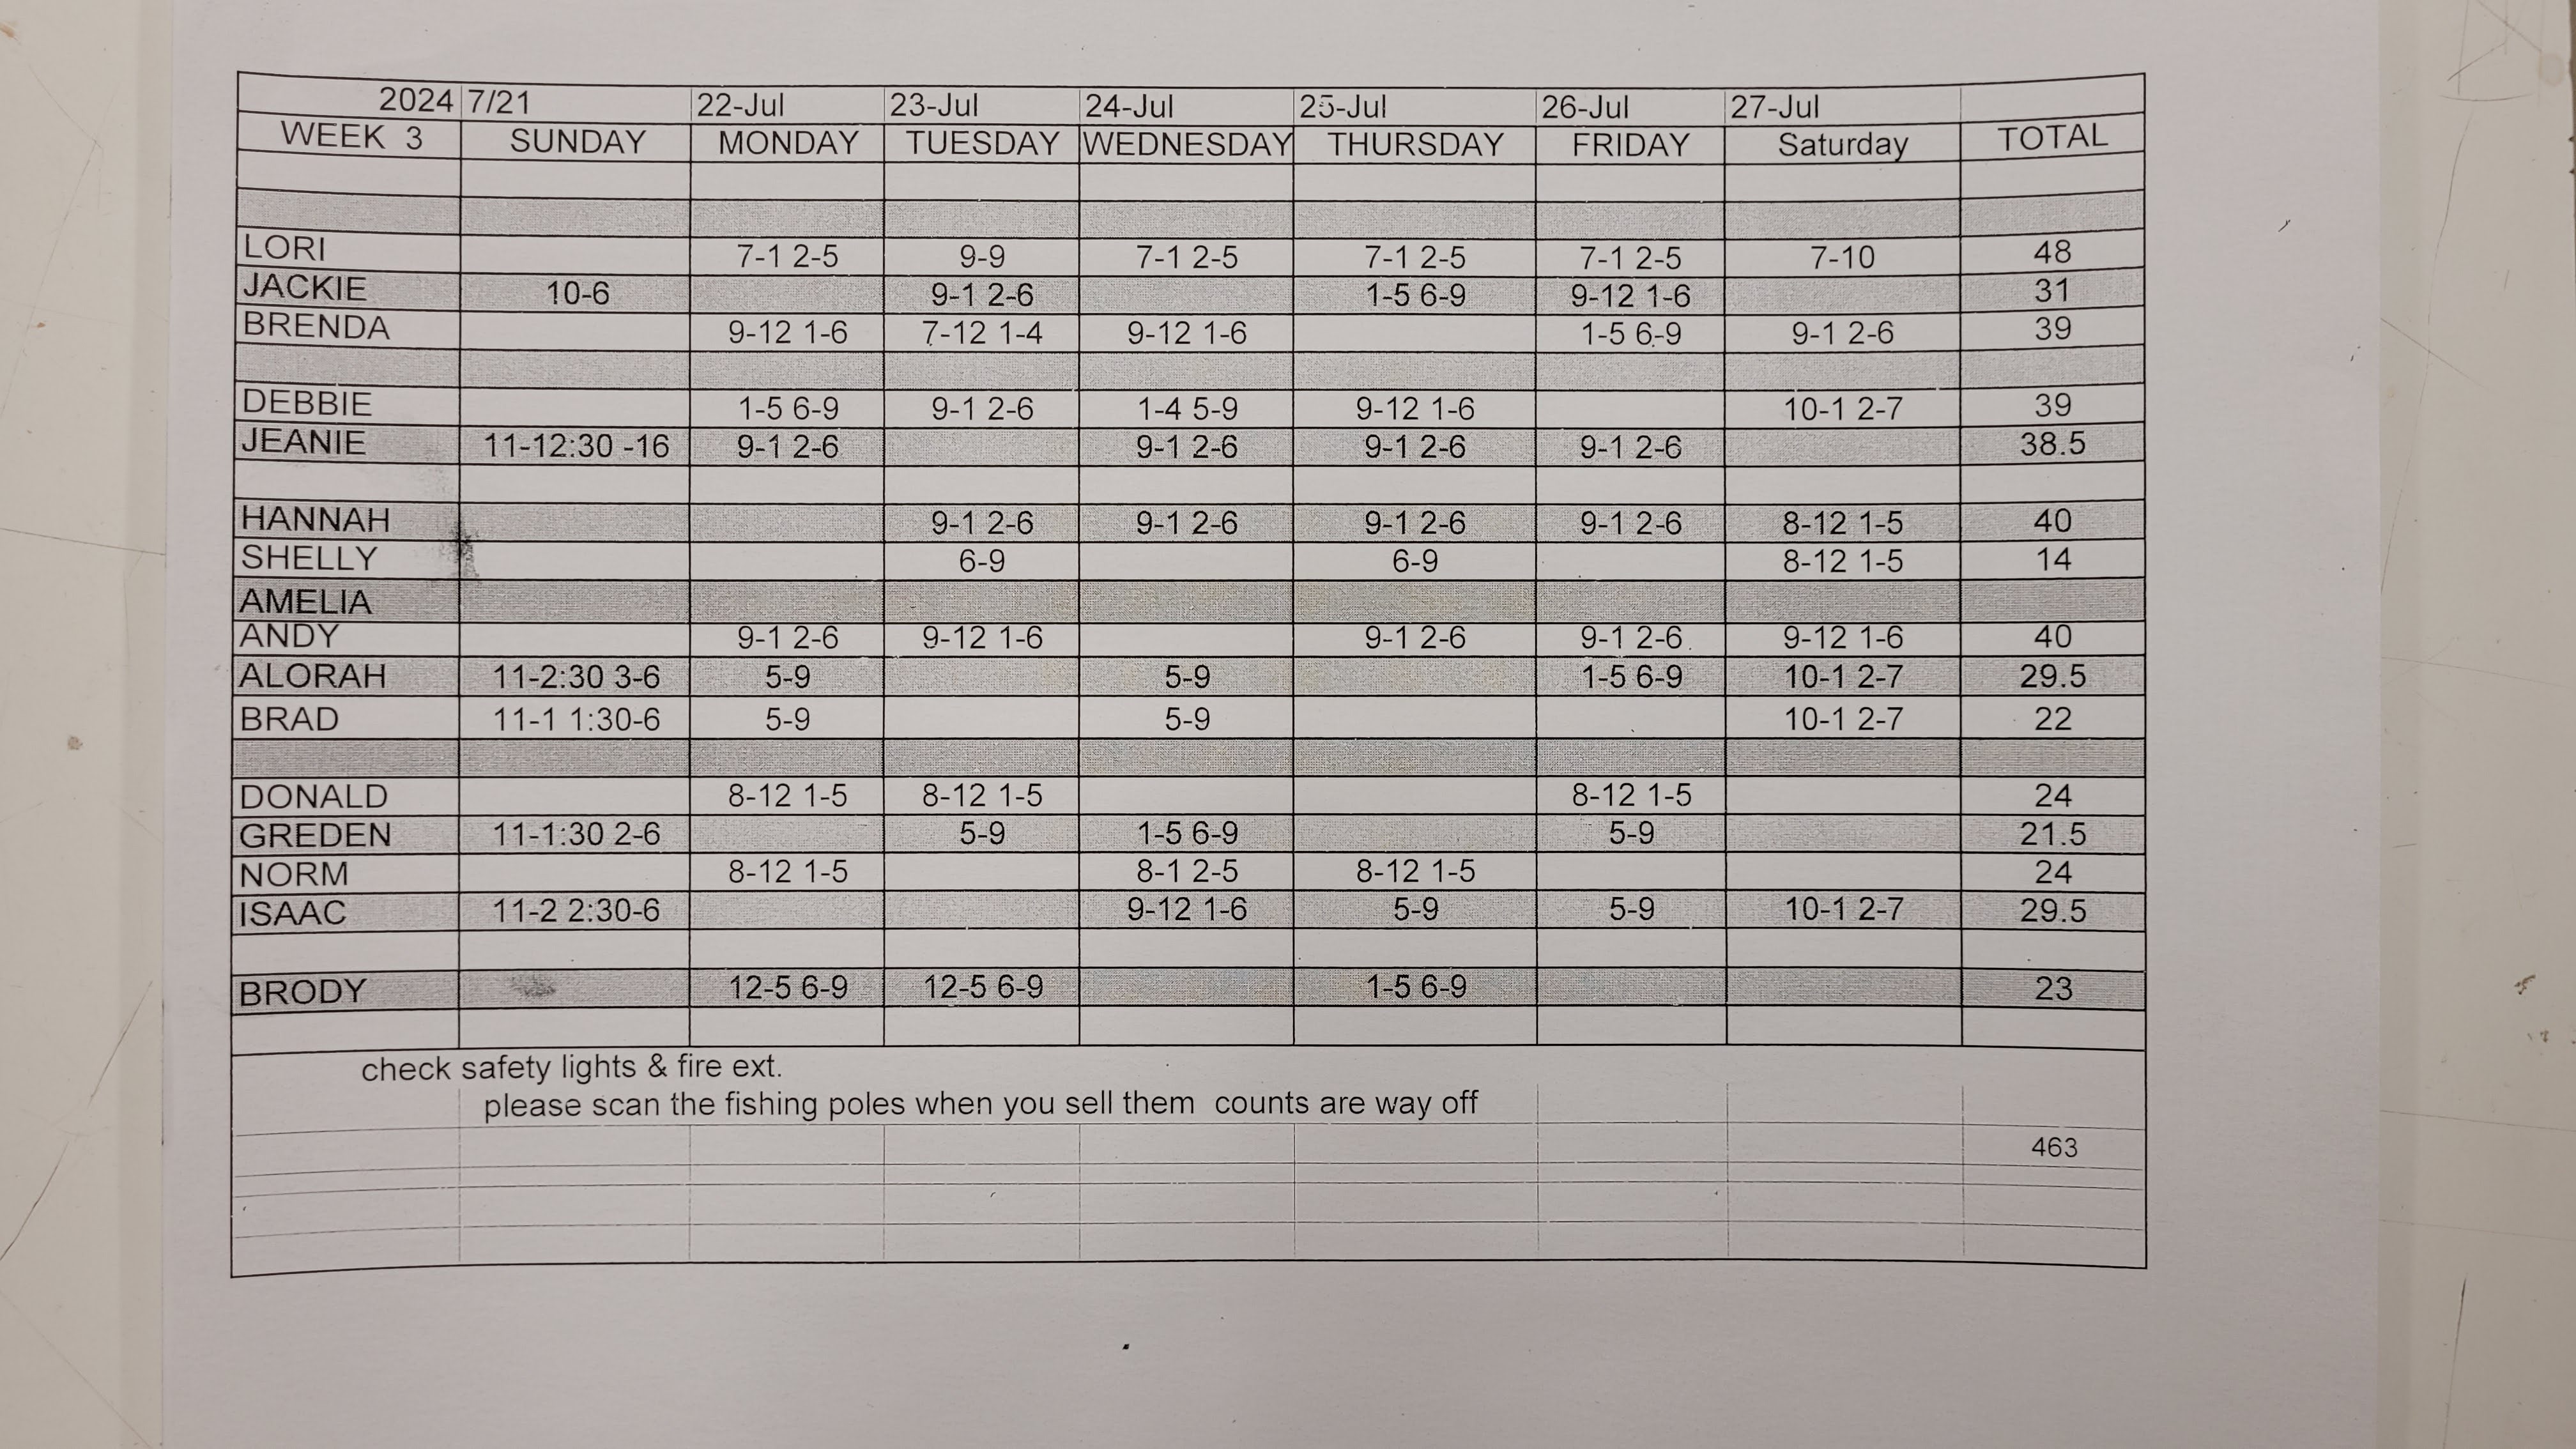 2024 7/21 22-Jul 23-Jul 24-Jul 25-Jul 26-Jul 27-Jul
WEEK 3 SUNDAY MONDAY TUESDAY WEDNESDAY THURSDAY FRIDAY Saturday TOTAL
LORI 7-1 2-5 9-9 7-1 2-5 7-1 2-5 7-1 2-5 7-10 48
JACKIE 10-6 9-1 2-6 1-5 6-9 9-12 1-6 31
BRENDA 9-12 1-6 7-12 1-4 9-12 1-6 1-5 6-9 9-1 2-6 39
DEBBIE 1-5 6-9 9-1 2-6 1-4 5-9 9-12 1-6 10-1 2-7 39
JEANIE 11-12:30 -16 9-1 2-6 9-1 2-6 9-1 2-6 9-1 2-6 38.5
HANNAH 9-1 2-6 9-1 2-6 9-1 2-6 9-1 2-6 8-12 1-5 40
SHELLY 6-9 6-9 8-12 1-5 14
AMELIA
ANDY 9-1 2-6 9-12 1-6 9-1 2-6 9-1 2-6 9-12 1-6 40
ALORAH 11-2:30 3-6 5-9 5-9 1-5 6-9 10-1 2-7 29.5
BRAD 11-1 1:30-6 5-9 5-9 10-1 2-7 22
DONALD 8-12 1-5 8-12 1-5 8-12 1-5 24
GREDEN 11-1:30 2-6 5-9 1-5 6-9 5-9 21.5
NORM 8-12 1-5 8-1 2-5 8-12 1-5 24
ISAAC 11-2 2:30-6 9-12 1-6 5-9 5-9 10-1 2-7 29.5
BRODY 12-5 6-9 12-5 6-9 1-5 6-9 23
check safety lights & fire ext.
please scan the fishing poles when you sell them counts are way off
463